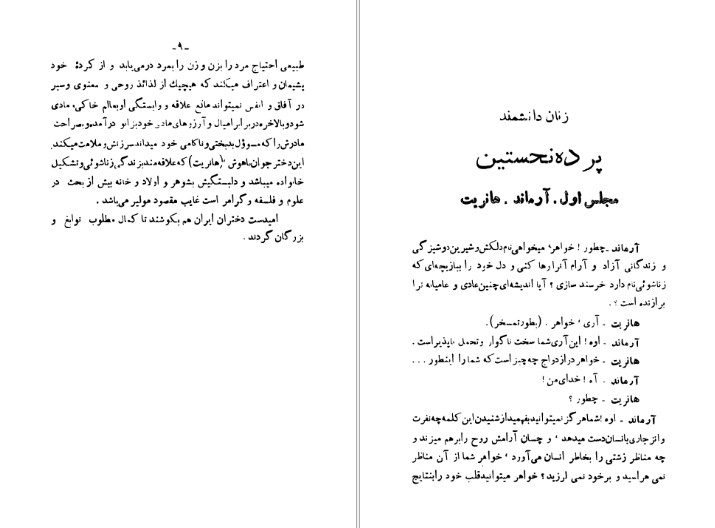 زنان دانشمند
پرده نخستین
مجلس اول . آرماند . هانریت
آرماند ـ چطور ! خواهر، میخواهی نام دلکش و شیرین دوشیزگی
و زندگانی آزاد و آرام آنرا رها کنی و دل خود را ببازیچه‌ای که
زناشوئی نام دارد خرسند سازی ؟ آیا اندیشه‌ای چنین عادی و عامیانه ترا
برازنده است ؟ .
هانریت ـ آری ، خواهر . (بطور تمسخر).
آرماند ـ اوه ! این آری شما سخت ناگوار و تحمل ناپذیر است .
هانریت ـ خواهر در ازدواج چه چیز است که شما را اینطور . . .
آرماند ـ آه ! خدای من !
هانریت ـ چطور ؟
آرماند ـ اوه ! شما هرگز نمیتوانید بفهمید از شنیدن این کلمه چه نفرت
و انزجاری بانسان دست میدهد ، و چسان آرامش روح را برهم میزند و
چه مناظر زشتی را بخاطر انسان می‌آورد ، خواهر شما از آن مناظر
نمی هراسید و برخود نمی لرزید ؟ خواهر میتوانید قلب خود را بنتایج
ـ ۹ ـ
طبیعی احتیاج مرد را بزن و زن را بمرد درمی‌یابد و از کردهٔ خود
پشیمان و اعتراف میکند که هیچیك از لذائذ روحی و معنوی و سیر
در آفاق و انفس نمیتواند مانع علاقه و وابستگی او بعالم خاکی و مادی
شود و بالاخره در برابر امیال و آرزوهای مادر خود بزانو درآمده و بصراحت
مادرش را که مسؤول بدبختی و ناکامی خود میداند سرزنش و ملامت میکند.
این دختر جوان باهوش «(هانریت) که علاقه‌مند بزندگی زناشوئی و تشکیل
خانواده میباشد و دلبستگیش بشوهر و اولاد و خانه بیش از بحث در
علوم و فلسفه و گرامر است غایب مقصود مولیر می‌باشد .
امیدست دختران ایران هم بکوشند تا کمال مطلوب نوابغ و
بزرگان گردند .